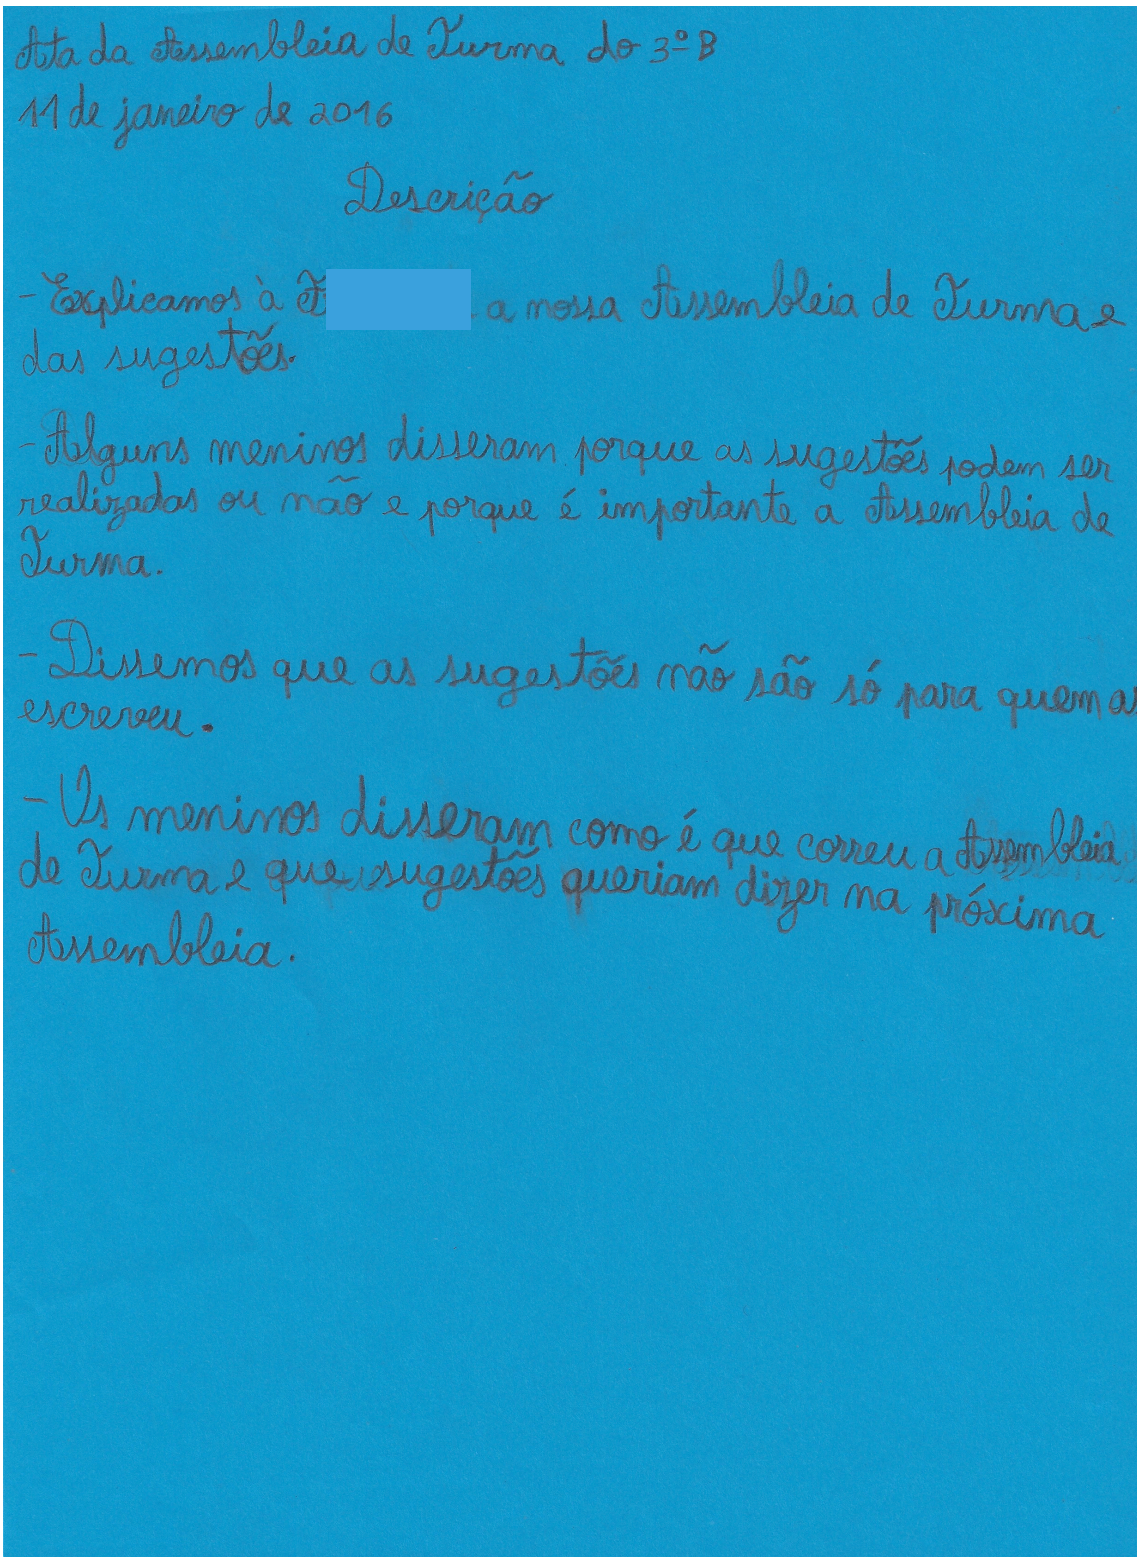 Ata da Assembleia de Turma do 3º B
11 de janeiro de 2016
Descrição
- Explicamos à a nossa Assembleia de Turma e
das sugestões.
- Alguns meninos disseram porque as sugestões podem ser
realizadas ou não e porque é importante a Assembleia de
Turma.
- Dissemos que as sugestões não são só para quem as
escreveu.
- Os meninos disseram como é que correu a Assembleia
de Turma e que sugestões queriam dizer na próxima
Assembleia.